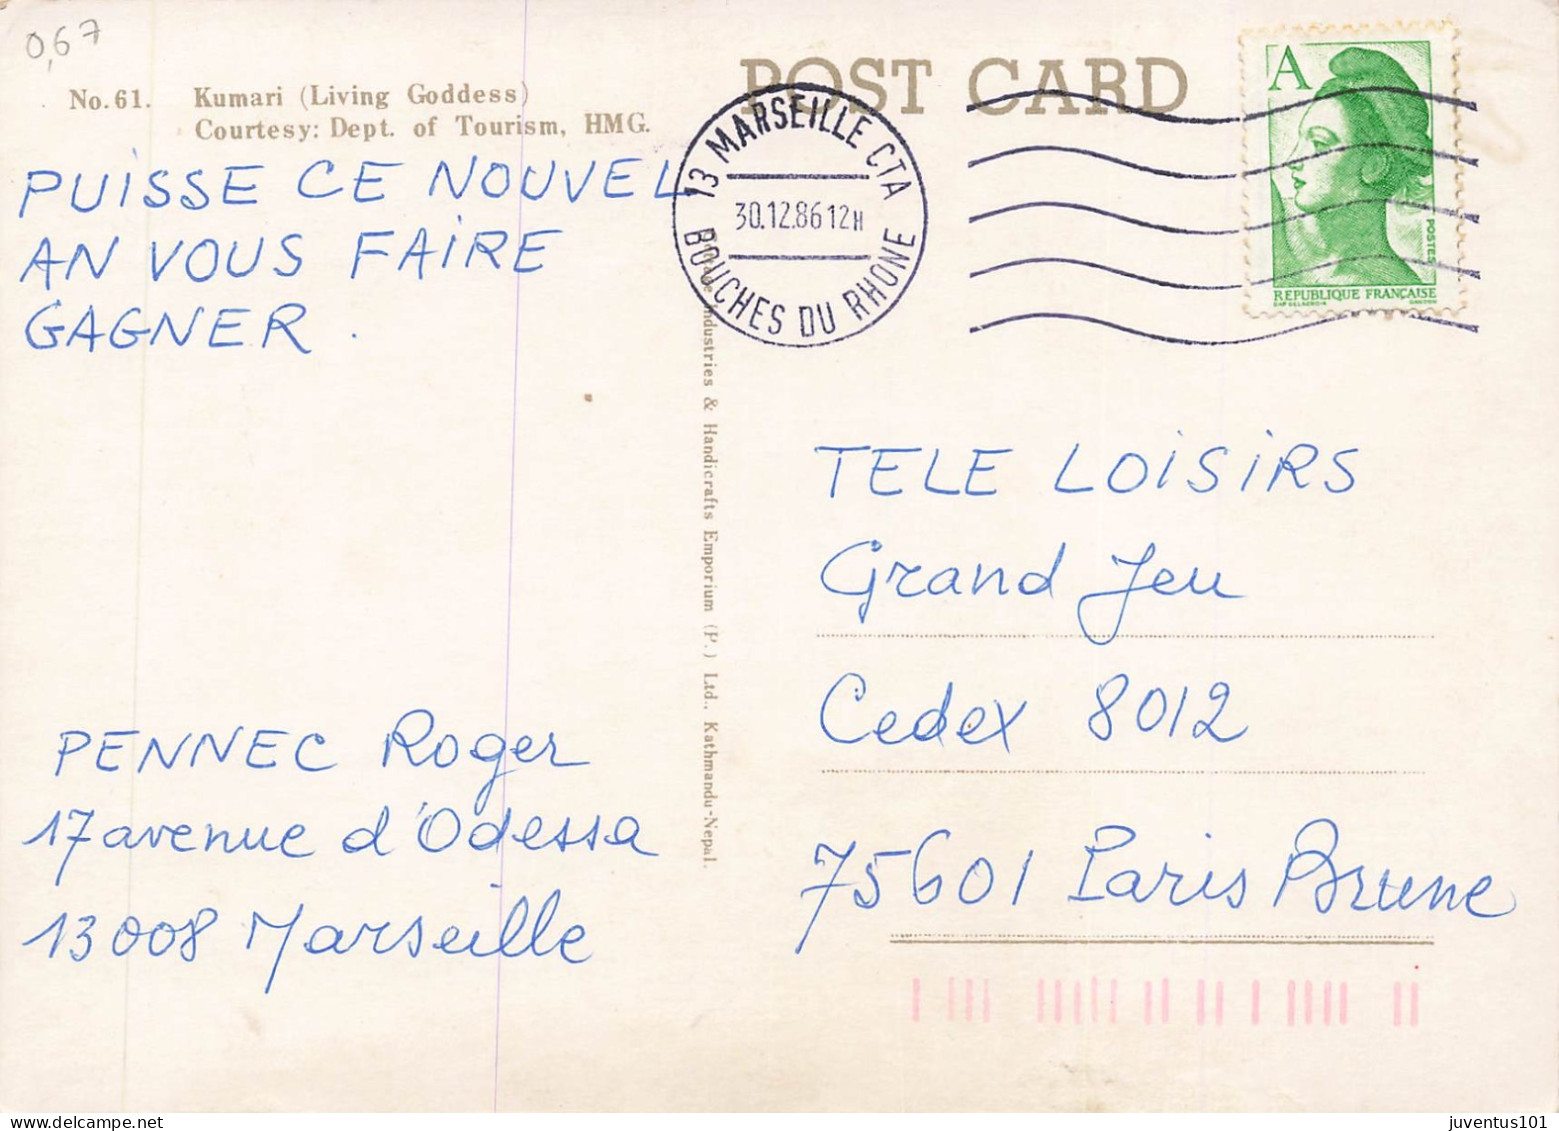 0,67
No. 61. Kumari (Living Goddess)
Courtesy: Dept. of Tourism, HMG.
POST CARD
PUISSE CE NOUVEL
AN VOUS FAIRE
GAGNER.
PENNEC Roger
17 avenue d'Odessa
13008 Marseille
13 MARSEILLE CTA
30.12.86 12H
BOUCHES DU RHONE
A
POSTES
REPUBLIQUE FRANÇAISE
Industries & Handicrafts Emporium (P.) Ltd., Kathmandu-Nepal.
TELE LOISIRS
Grand Jeu
Cedex 8012
75601 Paris Brune
juventus101